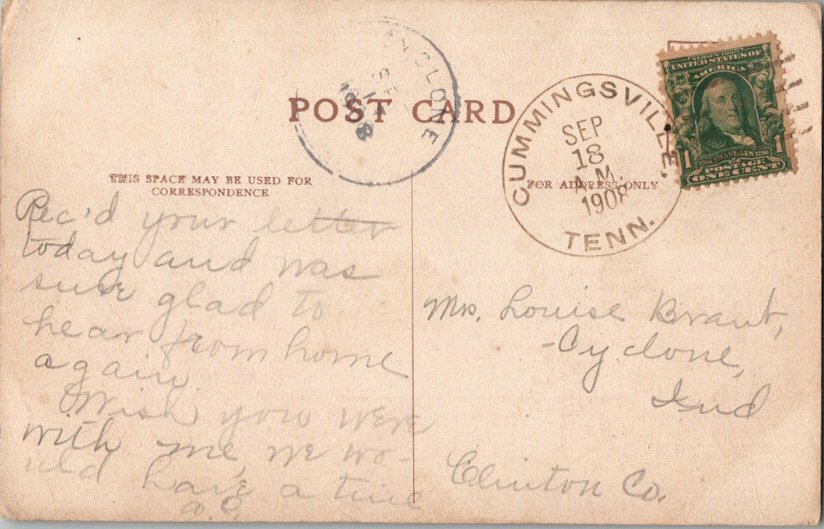 POST CARD
THIS SPACE MAY BE USED FOR
CORRESPONDENCE
Rec'd your letter
today and was
sure glad to
hear from home
again.
Wish you were
with me, we wo-
uld have a time
CYCLONE
1908
CUMMINGSVILLE,
SEP
18
A.M.
1908
TENN.
UNITED STATES OF
AMERICA
1 1
POSTAGE
ONE CENT
FOR ADDRESS ONLY
Mrs. Louise Brant,
Cyclone,
Ind
Clinton Co.